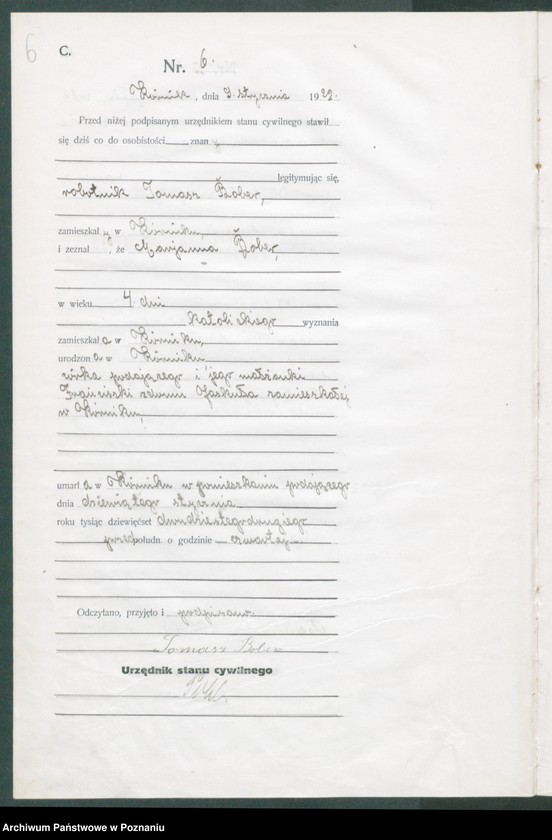 6
C.
Nr. 6.
Kórnik, dnia 9. stycznia 1922.
Przed niżej podpisanym urzędnikiem stanu cywilnego stawił
się dziś co do osobistości znan y
legitymując się,
robotnik Tomasz Bober,
zamieszkał y w Kórniku,
i zeznał, że Marjanna Bober,
w wieku 4 dni
katolickiego wyznania
zamieszkał a w Kórniku,
urodzon a w Kórniku
córka podającego i jego małżonki
Franciszki zdomu Jaskuła zamieszkałej
w Kórniku,
umarł a w Kórniku w pomieszkaniu podającego
dnia dziewiątego stycznia
roku tysiąc dziewięćset dwudziestegodrugiego
przedpołudn. o godzinie czwartej.
Odczytano, przyjęto i podpisano.
Tomasz Bober
Urzędnik stanu cywilnego
Archiwum Państwowe w Poznaniu